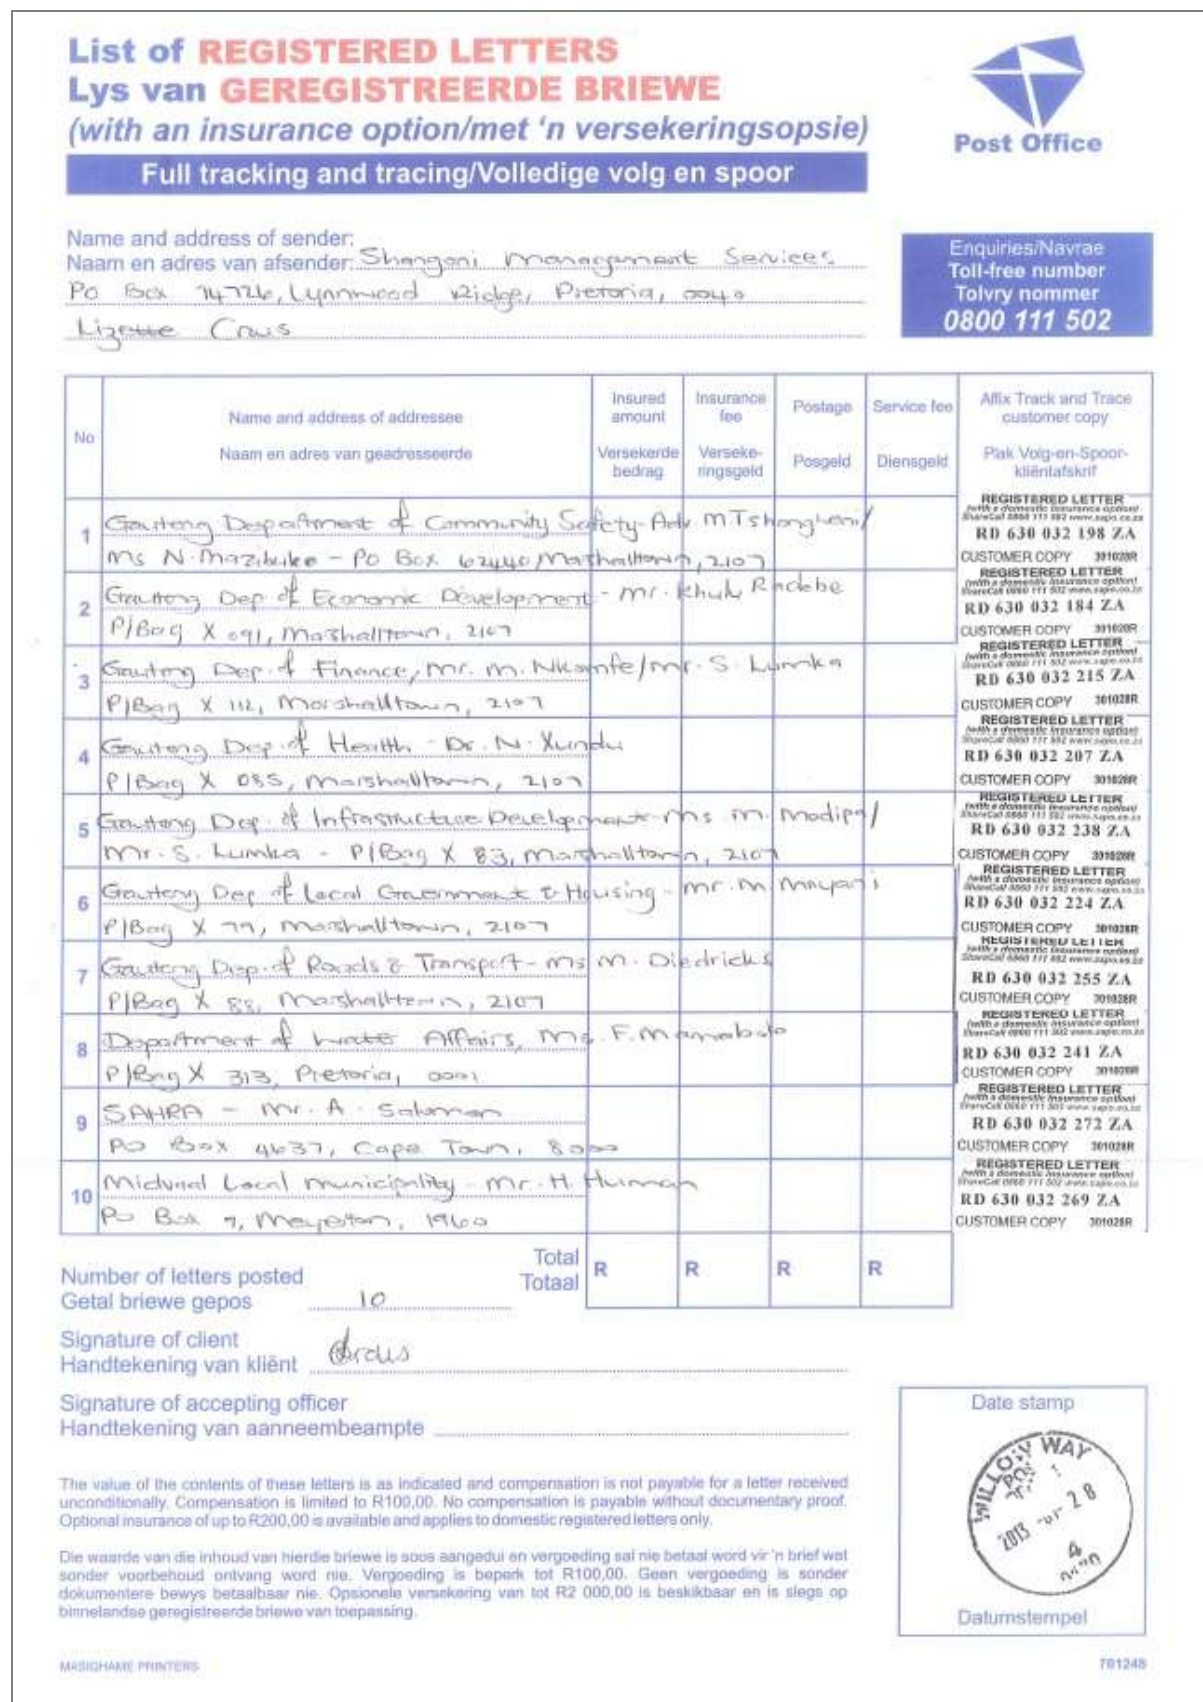 List of REGISTERED LETTERS
Lys van GEREGISTREERDE BRIEWE
(with an insurance option/met 'n versekeringsopsie)
Full tracking and tracing/Volledige volg en spoor
Post Office
Name and address of sender:
Naam en adres van afsender: Shangoni Management Services
PO Box 74726, Lynnwood Ridge, Pretoria, 0040
Lizette Crous
Enquiries/Navrae
Toll-free number
Tolvry nommer
0800 111 502
No
Name and address of addressee
Naam en adres van geadresseerde
Insured amount
Versekerde bedrag
Insurance fee
Verseke-ringsgeld
Postage
Posgeld
Service fee
Diensgeld
Affix Track and Trace customer copy
Plak Volg-en-Spoor-kliëntafskrif
1 Gauteng Department of Community Safety-Adv. M Tshongheni/
Ms N. Mazibuko - PO Box 62440, Marshalltown, 2107
REGISTERED LETTER
(with a domestic insurance option)
ShareCall 0860 111 502 www.sapo.co.za
RD 630 032 198 ZA
CUSTOMER COPY 301028R
2 Gauteng Dep of Economic Development - Mr. Khulu Radebe
P/Bag X 091, Marshalltown, 2107
REGISTERED LETTER
(with a domestic insurance option)
ShareCall 0860 111 502 www.sapo.co.za
RD 630 032 184 ZA
CUSTOMER COPY 301028R
3 Gauteng Dep. of Finance, Mr. M. /Mr. S. Lumka
P/Bag X 112, Marshalltown, 2107
REGISTERED LETTER
(with a domestic insurance option)
ShareCall 0860 111 502 www.sapo.co.za
RD 630 032 215 ZA
CUSTOMER COPY 301028R
4 Gauteng Dep. of Health - Dr. N. Xundu
P/Bag X 085, Marshalltown, 2107
REGISTERED LETTER
(with a domestic insurance option)
ShareCall 0860 111 502 www.sapo.co.za
RD 630 032 207 ZA
CUSTOMER COPY 301028R
5 Gauteng Dep. of Infrastructure Development - Ms. M. Modipa/
Mr. S. Lumka - P/Bag X 83, Marshalltown, 2107
REGISTERED LETTER
(with a domestic insurance option)
ShareCall 0860 111 502 www.sapo.co.za
RD 630 032 238 ZA
CUSTOMER COPY 301028R
6 Gauteng Dep of Local Government & Housing - Mr. M. Mnyani
P/Bag X 79, Marshalltown, 2107
REGISTERED LETTER
(with a domestic insurance option)
ShareCall 0860 111 502 www.sapo.co.za
RD 630 032 224 ZA
CUSTOMER COPY 301028R
7 Gauteng Dep. of Roads & Transport - Ms M. Diedricks
P/Bag X 88, Marshalltown, 2107
REGISTERED LETTER
(with a domestic insurance option)
ShareCall 0860 111 502 www.sapo.co.za
RD 630 032 255 ZA
CUSTOMER COPY 301028R
8 Department of Water Affairs, Ms. F. Mamabolo
P/Bag X 313, Pretoria, 0001
REGISTERED LETTER
(with a domestic insurance option)
ShareCall 0860 111 502 www.sapo.co.za
RD 630 032 241 ZA
CUSTOMER COPY 301028R
9 SAHRA - Mr. A. Salomon
PO Box 4637, Cape Town, 8000
REGISTERED LETTER
(with a domestic insurance option)
ShareCall 0860 111 502 www.sapo.co.za
RD 630 032 272 ZA
CUSTOMER COPY 301028R
10 Midvaal Local Municipality - Mr. H. Human
PO Box 9, Meyerton, 1960
REGISTERED LETTER
(with a domestic insurance option)
ShareCall 0860 111 502 www.sapo.co.za
RD 630 032 269 ZA
CUSTOMER COPY 301028R
Number of letters posted
Getal briewe gepos 10
Total
Totaal
R R R R
Signature of client
Handtekening van kliënt Crous
Signature of accepting officer
Handtekening van aanneembeampte
The value of the contents of these letters is as indicated and compensation is not payable for a letter received
unconditionally. Compensation is limited to R100,00. No compensation is payable without documentary proof.
Optional insurance of up to R200,00 is available and applies to domestic registered letters only.
Die waarde van die inhoud van hierdie briewe is soos aangedui en vergoeding sal nie betaal word vir 'n brief wat
sonder voorbehoud ontvang word nie. Vergoeding is beperk tot R100,00. Geen vergoeding is sonder
dokumentere bewys betaalbaar nie. Opsionele versekering van tot R2 000,00 is beskikbaar en is slegs op
binnelandse geregistreerde briewe van toepassing.
Date stamp
WILLOW WAY
2013 28
4
Datumstempel
MASIQHAME PRINTERS
701248